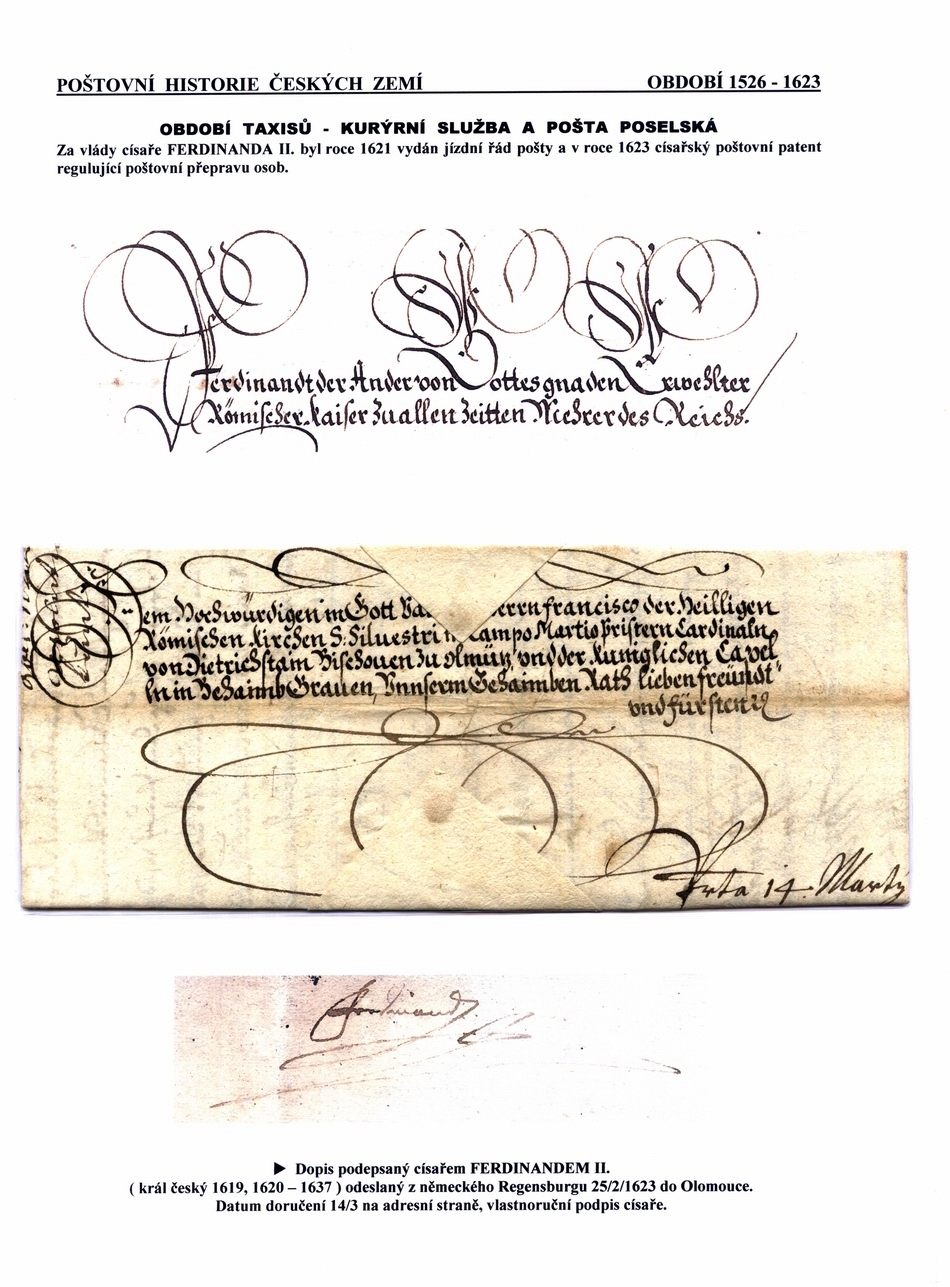 POŠTOVNÍ HISTORIE ČESKÝCH ZEMÍ OBDOBÍ 1526 - 1623
OBDOBÍ TAXISŮ - KURÝRNÍ SLUŽBA A POŠTA POSELSKÁ
Za vlády císaře FERDINANDA II. byl roce 1621 vydán jízdní řád pošty a v roce 1623 císařský poštovní patent
regulující poštovní přepravu osob.
Ferdinandt der Ander von Gottes gnaden Erwehlter
Römischer Kaiser Zu allen Zeitten Mehrer des Reichs.
Dem Hochwürdigen in Gott Herrn Francisco der Heilligen
Römischen Kirchen S: Siluestri in Campo Martio Pristern Cardinaln
von Dietrichstain Bischouen zu Olmüz, vnd der Kuniglichen Capel
ln in Behaimb Grauen, Vnnserm Gehaimben Rath lieben freündt
vnd fürsten
14. Marty
Ferdinand
► Dopis podepsaný císařem FERDINANDEM II.
( král český 1619, 1620 – 1637 ) odeslaný z německého Regensburgu 25/2/1623 do Olomouce.
Datum doručení 14/3 na adresní straně, vlastnoruční podpis císaře.